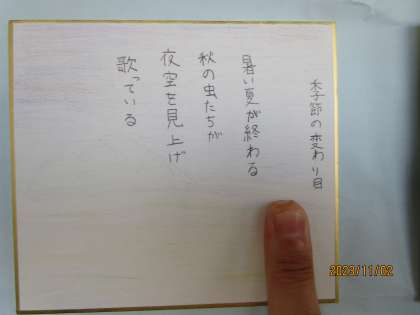 季節の変わり目
暑い夏が終わる
秋の虫たちが
夜空を見上げ
歌っている
2023/11/02